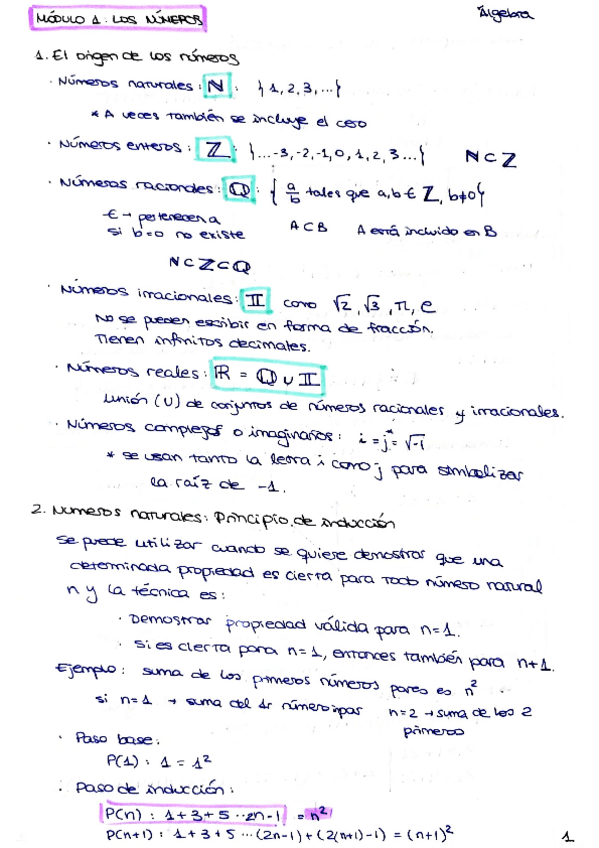 MÓDULO 1. LOS NÚMEROS
Álgebra
1. El origen de los números
· Números naturales: ℕ: {1, 2, 3, ...}
* A veces también se incluye el cero
· Números enteros: ℤ: {...-3, -2, -1, 0, 1, 2, 3...} ℕ⊂ℤ
· Números racionales: ℚ: {a/b tales que a, b ∈ ℤ, b≠0}
∈ → pertenecen a A⊂B A está incluido en B
si b=0 no existe
ℕ⊂ℤ⊂ℚ
· Números irracionales: 𝕀 como √2, √3, π, e
No se pueden escribir en forma de fracción.
Tienen infinitos decimales.
· Números reales: ℝ = ℚ ∪ 𝕀
Unión (∪) de conjuntos de números racionales y irracionales.
· Números complejos o imaginarios: i = j* = √-1
* se usan tanto la letra i como j para simbolizar
la raíz de -1.
2. Números naturales: Principio de inducción
Se puede utilizar cuando se quiere demostrar que una
determinada propiedad es cierta para todo número natural
n y la técnica es:
· Demostrar propiedad válida para n=1.
· Si es cierta para n=1, entonces también para n+1.
Ejemplo: suma de los primeros números pares es n²
si n=1 → suma del 1r número impar n=2 → suma de los 2
primeros
· Paso base:
P(1): 1 = 1²
· Paso de inducción:
P(n): 1+3+5 ··2n-1 = n²
P(n+1): 1+3+5 ··· (2n-1) + (2(n+1)-1) = (n+1)²
1